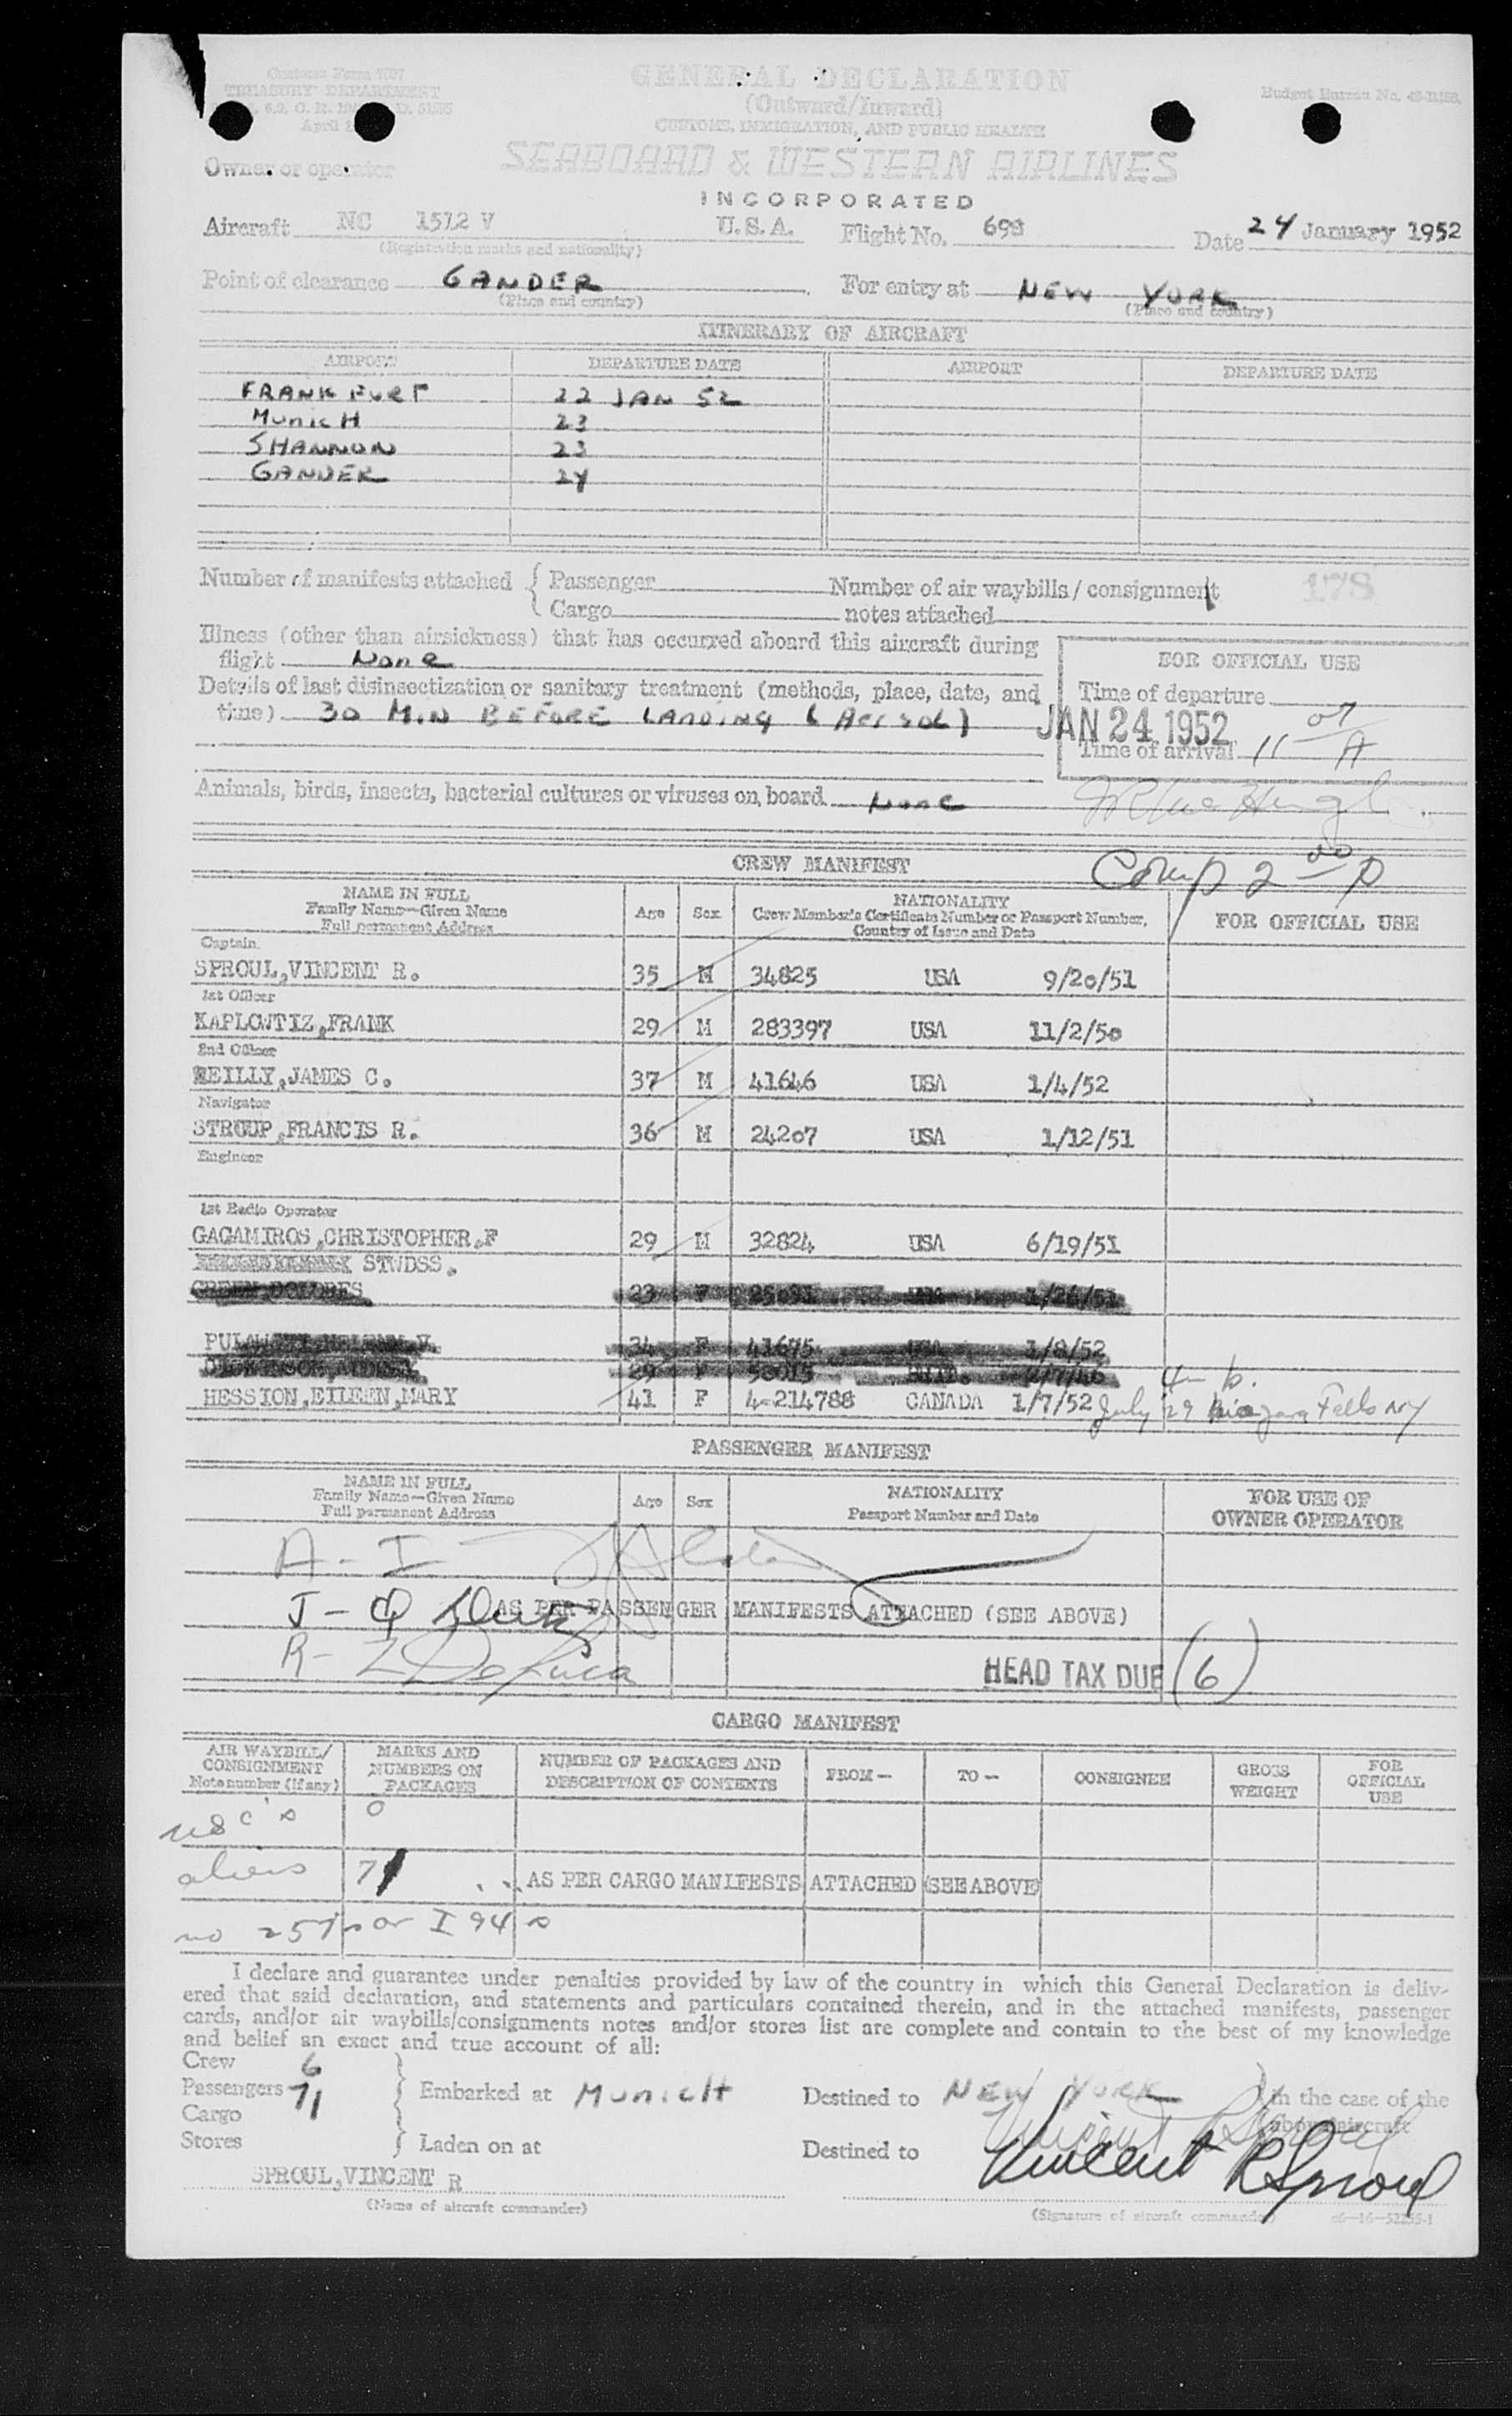 Customs Form 7507
TREASURY DEPARTMENT
GENERAL DECLARATION
(Outward/Inward)
CUSTOMS, IMMIGRATION, AND PUBLIC HEALTH
Budget Bureau No.
Owner or operator
SEABOARD & WESTERN AIRLINES
INCORPORATED
Aircraft NC 1512 V U.S.A. Flight No. 698 Date 24 January 1952
(Registration marks and nationality)
Point of clearance GANDER For entry at NEW YORK
(Place and country) (Place and country)
ITINERARY OF AIRCRAFT
AIRPORT DEPARTURE DATE AIRPORT DEPARTURE DATE
FRANKFURT 22 JAN 52
MUNICH 23
SHANNON 23
GANDER 24
Number of manifests attached { Passenger Number of air waybills / consignment 178
Cargo notes attached
Illness (other than airsickness) that has occurred aboard this aircraft during
flight None
FOR OFFICIAL USE
Details of last disinsectization or sanitary treatment (methods, place, date, and
time) 30 MIN BEFORE LANDING
Time of departure
JAN 24 1952
Time of arrival 11 07 A
Animals, birds, insects, bacterial cultures or viruses on board None
CREW MANIFEST Comp 2 00 P
NAME IN FULL
Family Name—Given Name
Full permanent Address
Age Sex
NATIONALITY
Crew Member's Certificate Number or Passport Number,
Country of Issue and Date
FOR OFFICIAL USE
Captain
SPROUL,VINCENT R. 35 M 34825 USA 9/20/51
1st Officer
KAPLOWTIZ,FRANK 29 M 283397 USA 11/2/50
2nd Officer
REILLY,JAMES C. 37 M 41646 USA 1/4/52
Navigator
STROUP,FRANCIS R. 36 M 24207 USA 1/12/51
Engineer
1st Radio Operator
GACAMIROS,CHRISTOPHER,F 29 M 32824 USA 6/19/51
STWDSS.
GREEN,DOLORES 23 F
34 F 41675 1/8/52
29
HESSION,EILEEN,MARY 41 F 4-214788 CANADA 1/7/52 July 29 Niagara Falls NY
PASSENGER MANIFEST
NAME IN FULL
Family Name—Given Name
Full permanent Address
Age Sex
NATIONALITY
Passport Number and Date
FOR USE OF
OWNER OPERATOR
A - I
J - Q
AS PER PASSENGER MANIFESTS ATTACHED (SEE ABOVE)
R - Z DeLuca
HEAD TAX DUE (6)
CARGO MANIFEST
AIR WAYBILL/
CONSIGNMENT
Note number (if any)
MARKS AND
NUMBERS ON
PACKAGES
NUMBER OF PACKAGES AND
DESCRIPTION OF CONTENTS
FROM— TO— CONSIGNEE
GROSS
WEIGHT
FOR
OFFICIAL
USE
USC's 0
aliens 71 AS PER CARGO MANIFESTS ATTACHED (SEE ABOVE)
no 257s or I 94 s
I declare and guarantee under penalties provided by law of the country in which this General Declaration is deliv-
ered that said declaration, and statements and particulars contained therein, and in the attached manifests, passenger
cards, and/or air waybills/consignments notes and/or stores list are complete and contain to the best of my knowledge
and belief an exact and true account of all:
Crew 6
Passengers 71 Embarked at MUNICH Destined to NEW YORK In the case of the
Cargo above aircraft
Stores Laden on at Destined to Vincent R Sproul
SPROUL,VINCENT R
(Name of aircraft commander) (Signature of aircraft commander)